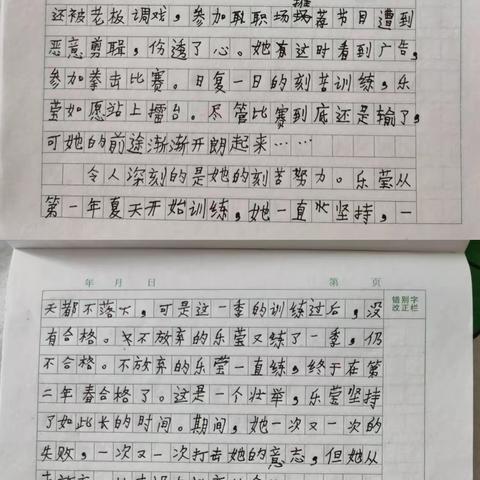 还被老板调戏，参加职场推荐节目遭到
恶意剪辑，伤透了心。她有这时看到广告，
参加拳击比赛。日复一日的刻苦训练，乐
莹如愿站上擂台。尽管比赛到底还是输了，
可她的前途渐渐开朗起来……
令人深刻的是她的刻苦努力。乐莹从
第一年夏天开始训练，她一直坚持，一
年 月 日 第 页
错别字
改正栏
天都不落下，可是这一季的训练过后，没
有合格。不放弃的乐莹又练了一季，仍
不合格。不放弃的乐莹一直练，终于在第
二年春合格了。这是一个壮举，乐莹坚持
了如此长的时间。期间，她一次又一次的
失败，一次又一次打击她的意志，但她从